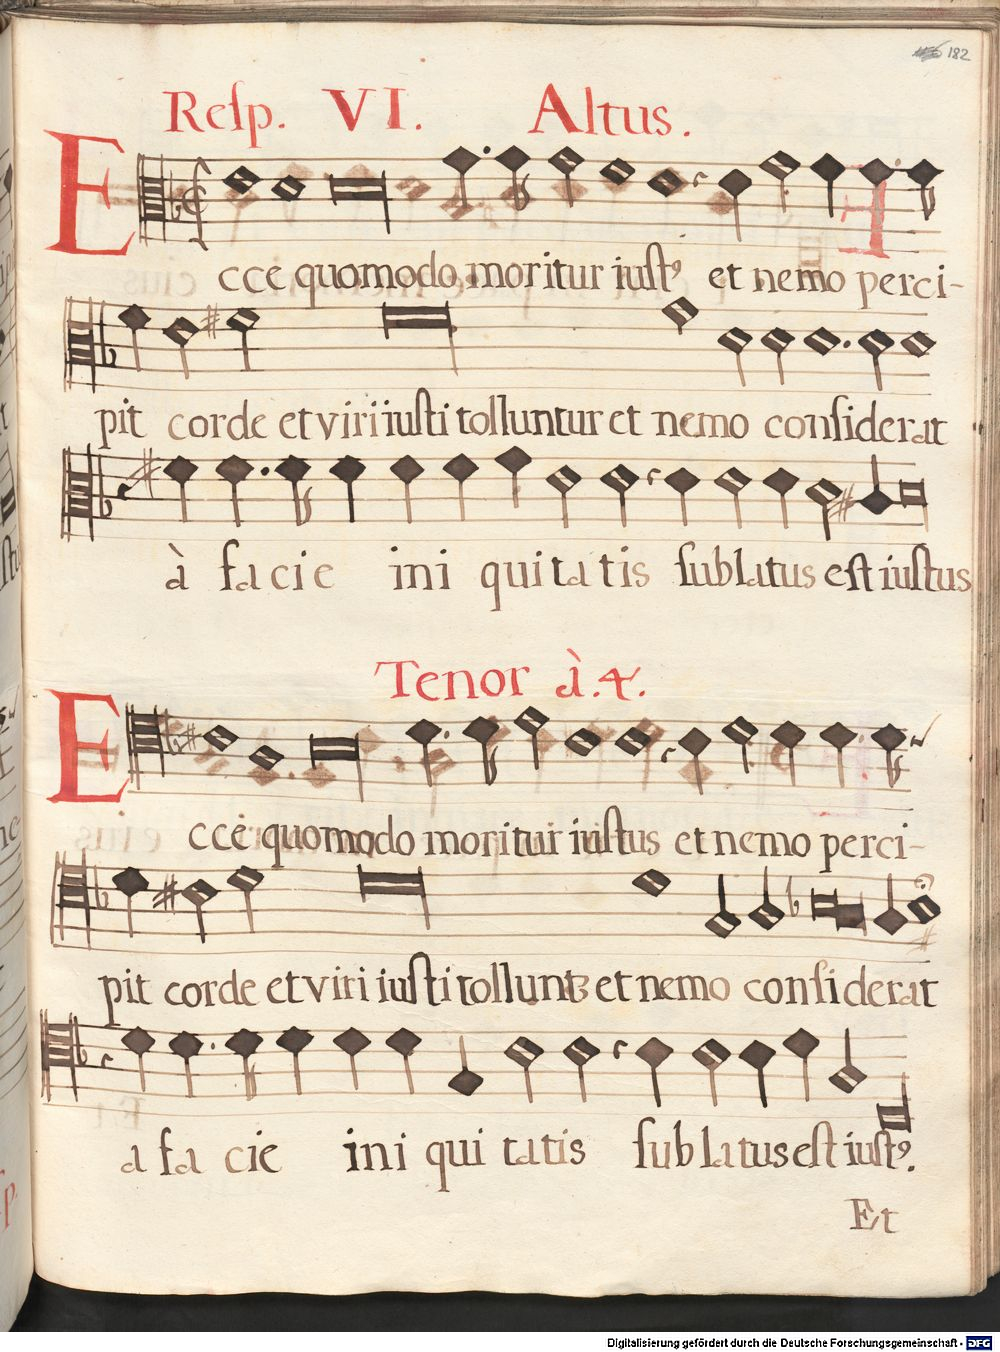 182
Resp. VI. Altus.
Ecce quomodo moritur iustꝰ et nemo perci-
pit corde et viri iusti tolluntur et nemo considerat
à facie iniquitatis sublatus est iustus
Tenor à.4.
Ecce quomodo moritur iustus et nemo perci-
pit corde et viri iusti tollunt₃ et nemo considerat
a facie iniquitatis sublatus est iustꝰ.
Et
Digitalisierung gefördert durch die Deutsche Forschungsgemeinschaft - DFG